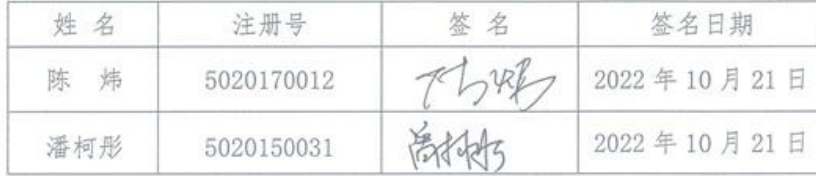 姓 名 注册号 签 名 签名日期
陈 炜 5020170012 陈炜 2022 年 10 月 21 日
潘柯彤 5020150031 2022 年 10 月 21 日